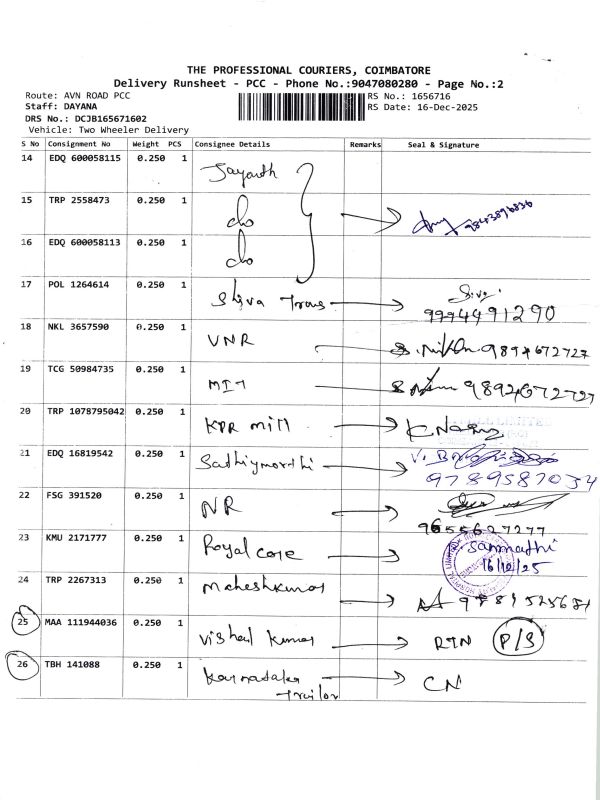 THE PROFESSIONAL COURIERS, COIMBATORE
Delivery Runsheet - PCC - Phone No.:9047080280 - Page No.:2
Route: AVN ROAD PCC
RS No.: 1656716
Staff: DAYANA
RS Date: 16-Dec-2025
DRS No.: DCJB165671602
Vehicle: Two Wheeler Delivery
S No Consignment No Weight PCS Consignee Details Remarks Seal & Signature
14 EDQ 600058115 0.250 1 Jayanth
15 TRP 2558473 0.250 1 do 9843896836
16 EDQ 600058113 0.250 1 do
17 POL 1264614 0.250 1 Shiva Trans Siva
9994491290
18 NKL 3657590 0.250 1 VNR 9894672727
19 TCG 50984735 0.250 1 MIT 9894672727
20 TRP 1078795042 0.250 1 KPR mill
21 EDQ 16819542 0.250 1 Sathiymorthi
9789587034
22 FSG 391520 0.250 1 NR
9655627277
23 KMU 2171777 0.250 1 Royal care Sanmathi
16/12/25
24 TRP 2267313 0.250 1 Maheshkumar
25 MAA 111944036 0.250 1 Vishal Kumar RTN P/S
26 TBH 141088 0.250 1 Karnataka CN
Trailor